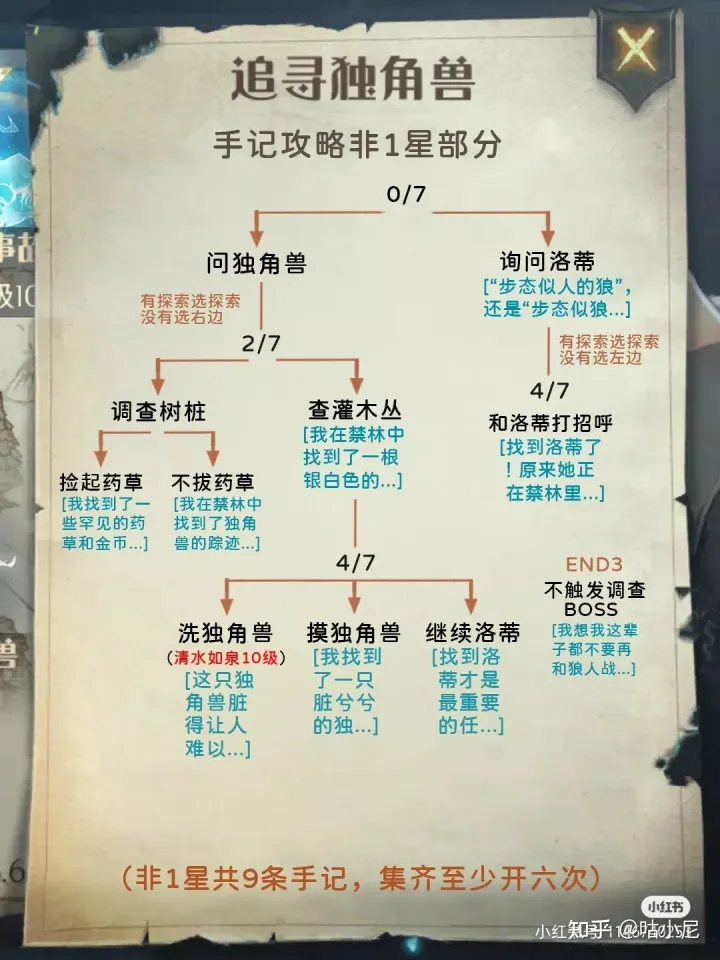 追寻独角兽
手记攻略非1星部分
0/7
问独角兽
询问洛蒂
[“步态似人的狼”，
还是“步态似狼...]
有探索选探索
没有选右边
有探索选探索
没有选左边
2/7
4/7
调查树桩
查灌木丛
[我在禁林中
找到了一根
银白色的...]
和洛蒂打招呼
[找到洛蒂了
！原来她正
在禁林里...]
捡起药草
[我找到了一
些罕见的药
草和金币...]
不拔药草
[我在禁林中
找到了独角
兽的踪迹...]
4/7
END3
不触发调查
BOSS
[我想我这辈
子都不要再
和狼人战...]
洗独角兽
（清水如泉10级）
[这只独
角兽脏
得让人
难以...]
摸独角兽
[我找到
了一只
脏兮兮
的独...]
继续洛蒂
[找到洛
蒂才是
最重要
的任...]
（非1星共9条手记，集齐至少开六次）
小红书
知乎 @咕小尼